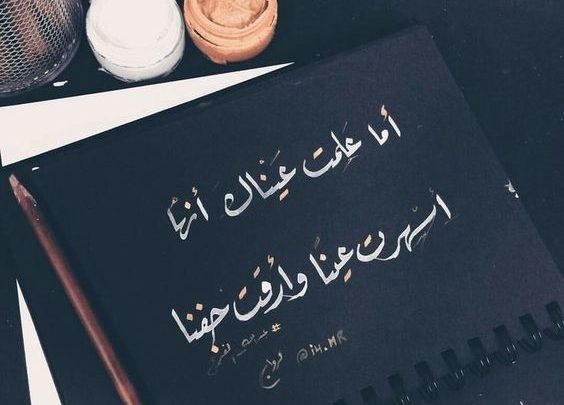 أما علمت عيناك أنها
أسهرت عيناً وأرقت جفنا
رواج @i4.MR